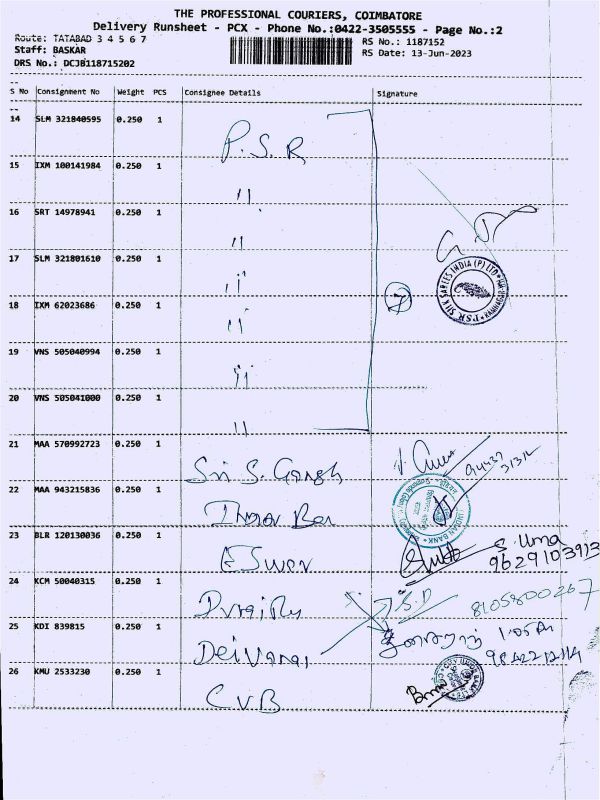 THE PROFESSIONAL COURIERS, COIMBATORE
Delivery Runsheet - PCX - Phone No.:0422-3505555 - Page No.:2
Route: TATABAD 3 4 5 6 7
RS No.: 1187152
Staff: BASKAR
RS Date: 13-Jun-2023
DRS No.: DCJB118715202
S No Consignment No Weight PCS Consignee Details Signature
14 SLM 321840595 0.250 1 P.S.R
15 IXM 100141984 0.250 1 11
16 SRT 14978941 0.250 1 11
17 SLM 321801610 0.250 1 11
18 IXM 62023686 0.250 1 11
7
PSR SILK SAREES INDIA (P) LTD
19 VNS 505040994 0.250 1 11
20 VNS 505041000 0.250 1 11
21 MAA 570992723 0.250 1 Sri S. Gansh
22 MAA 943215836 0.250 1 Indian Ban
INDIAN BANK
23 BLR 120130036 0.250 1 ESwer
S. Uma
9629103913
24 KCM 50040315 0.250 1
S.D 8105800267
25 KDI 839815 0.250 1 Deivanai
9842212114
26 KMU 2533230 0.250 1 C V B